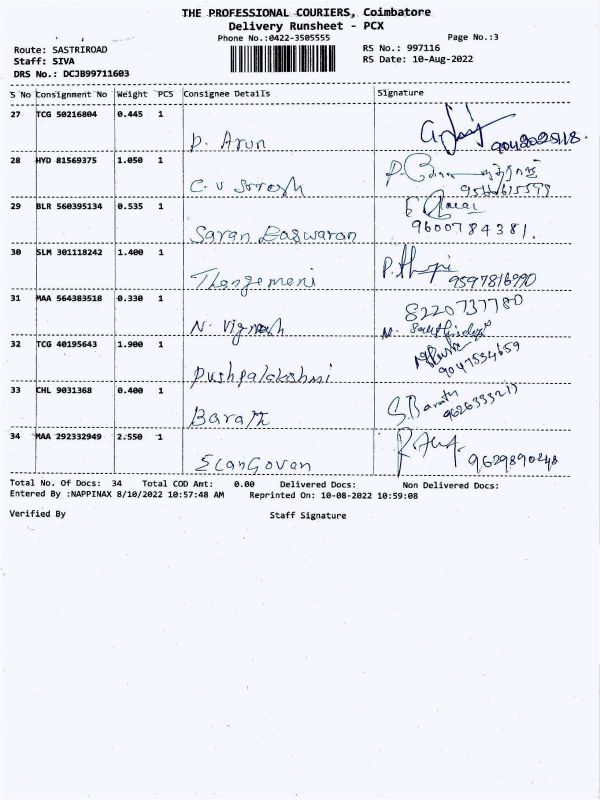 THE PROFESSIONAL COURIERS, Coimbatore
Delivery Runsheet - PCX
Phone No.:0422-3505555 Page No.:3
Route: SASTRIROAD RS No.: 997116
Staff: SIVA RS Date: 10-Aug-2022
DRS No.: DCJB99711603
S No Consignment No Weight PCS Consignee Details Signature
27 TCG 50216804 0.445 1
P. Arun
28 HYD 81569375 1.050 1
C.V Suresh
29 BLR 560395134 0.535 1
Saran Easwaran 9600784381.
30 SLM 301118242 1.400 1
Thangemani 9597816990
31 MAA 564383518 0.330 1 8220737780
N. Vignesh
32 TCG 40195643 1.900 1
Pushpalakshmi 9047534659
33 CHL 9031368 0.400 1
Barath S.Barath
34 MAA 292332949 2.550 1
Elangovan 9629890248
Total No. Of Docs: 34 Total COD Amt: 0.00 Delivered Docs: Non Delivered Docs:
Entered By :NAPPINAX 8/10/2022 10:57:48 AM Reprinted On: 10-08-2022 10:59:08
Verified By Staff Signature